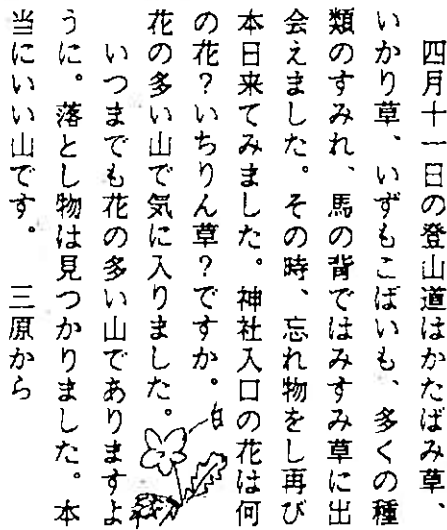 四月十一日の登山道はかたばみ草、
いかり草、いずもこばいも、多くの種
類のすみれ、馬の背ではみすみ草に出
会えました。その時、忘れ物をし再び
本日来てみました。神社入口の花は何
の花？いちりん草？ですか。
花の多い山で気に入りました。
いつまでも花の多い山でありますよ
うに。落とし物は見つかりました。本
当にいい山です。　三原から
白